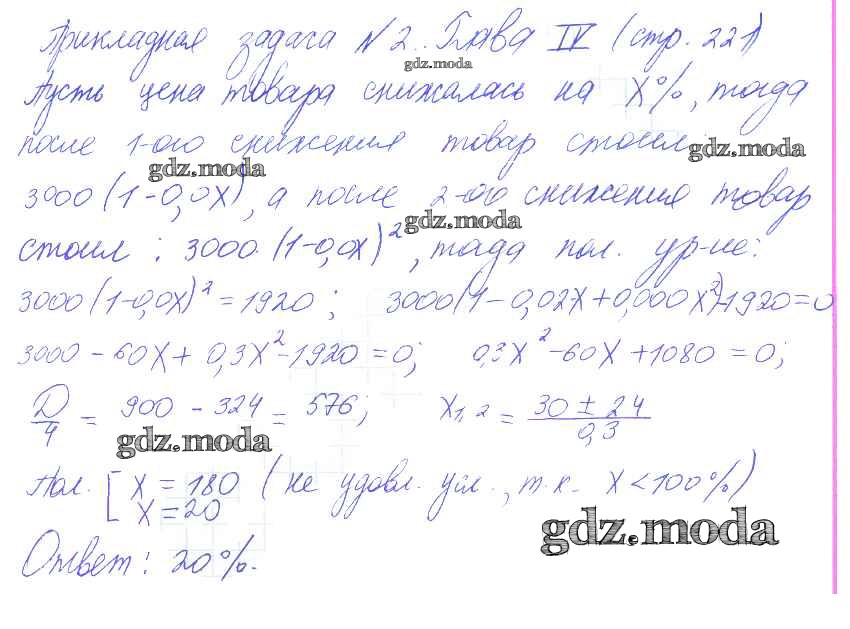 Прикладная задача № 2. Глава IV (стр. 221)
gdz.moda
Пусть цена товара снижалась на X%, тогда
после 1-ого снижения товар стоил:
gdz.moda
gdz.moda
3000(1-0,0X), а после 2-ого снижения товар
gdz.moda
стоил: 3000·(1-0,0X)², тогда пол. ур-ие:
3000(1-0,0X)² = 1920; 3000(1-0,02X+0,000X²)-1920=0
3000-60X+0,3X²-1920=0; 0,3X²-60X+1080=0;
D/4 = 900-324 = 576; X₁,₂ = (30 ± 24)/0,3
gdz.moda
Пол. [ X = 180 (не удовл. усл., т.к. X<100%)
X = 20
gdz.moda
Ответ: 20%.